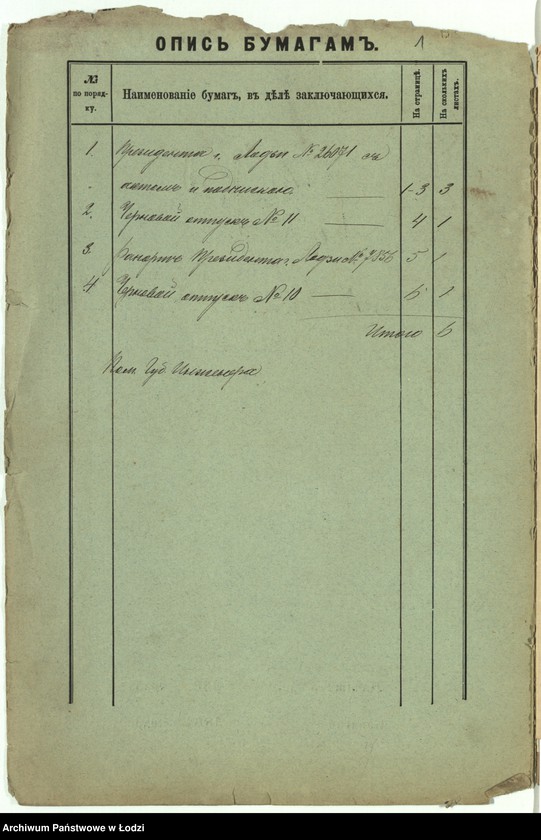 ОПИСЬ БУМАГАМЪ.
1
№
по поряд-
ку.
Наименованіе бумагъ, въ дѣлѣ заключающихся.
На страницѣ.
На сколькихъ
листахъ.
1. Президента г. Лодзи № 26071 съ
актомъ и подпискою 1-3 3
2. Черновой отпускъ № 11 4 1
3. Рапортъ Президента г. Лодзи № 7356 5 1
4. Черновой отпускъ № 10 6 1
Итого 6
Губ. Инженера
Archiwum Państwowe w Łodzi